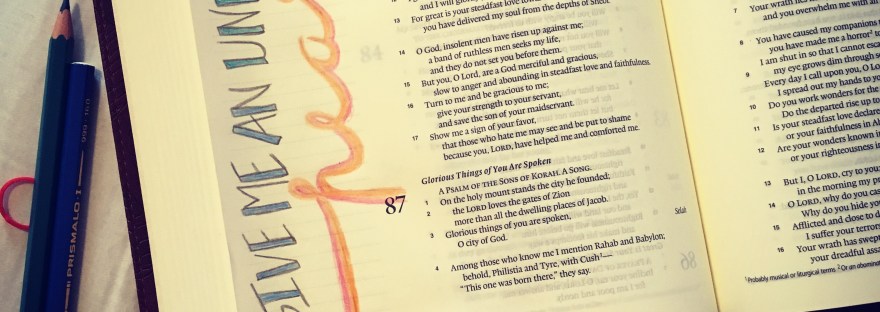 GIVE ME AN UN
hea
PRISMALO I
999 160
and I will glorify
13 For great is your steadfast love toward
you have delivered my soul from the depths of Sheol.
14 O God, insolent men have risen up against me;
a band of ruthless men seeks my life,
and they do not set you before them.
15 But you, O Lord, are a God merciful and gracious,
slow to anger and abounding in steadfast love and faithfulness.
16 Turn to me and be gracious to me;
give your strength to your servant,
and save the son of your maidservant.
17 Show me a sign of your favor,
that those who hate me may see and be put to shame
because you, LORD, have helped me and comforted me.
Glorious Things of You Are Spoken
87 A PSALM OF THE SONS OF KORAH. A SONG.
1 On the holy mount stands the city he founded;
2 the LORD loves the gates of Zion
more than all the dwelling places of Jacob.
3 Glorious things of you are spoken,
O city of God. Selah
4 Among those who know me I mention Rahab and Babylon;
behold, Philistia and Tyre, with Cush—
"This one was born there," they say.
7 Your wrath
and you overwhelm me with
8 You have caused my companions
you have made me a horror
I am shut in so that I cannot esca
9 my eye grows dim through
Every day I call upon you, O Lo
I spread out my hands to yo
10 Do you work wonders for the
Do the departed rise up to
11 Is your steadfast love declare
or your faithfulness in Ab
12 Are your wonders known in
or your righteousness in
13 But I, O LORD, cry to you
in the morning my pr
14 O LORD, why do you cas
Why do you hide yo
15 Afflicted and close to d
I suffer your terrors
16 Your wrath has swep
your dreadful assa
1 Probably musical or liturgical terms 2 Or an abominat